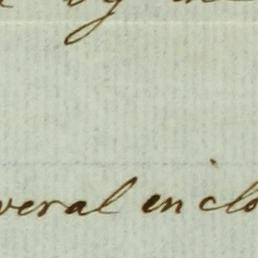 by
veral enclo